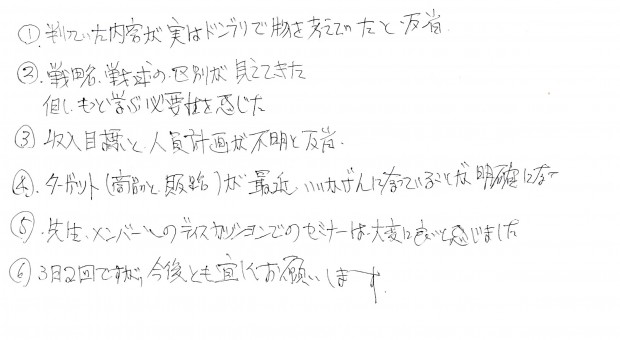 ①.判っていた内容が実はドンブリで物を考えていたと反省.
②.戦略、戦術の区別が見えてきた
但し、もっと学ぶ必要性を感じた
③.収入目標と、人員計画が不明と反省.
④.ターゲット(商品と販路)が最近いいかげんに なっていることが明確になって
⑤.先生、メンバーとのディスカッションでのセミナーは大変に良いと感じました
⑥.3日2回ですが、今後とも宜しくお願いします.